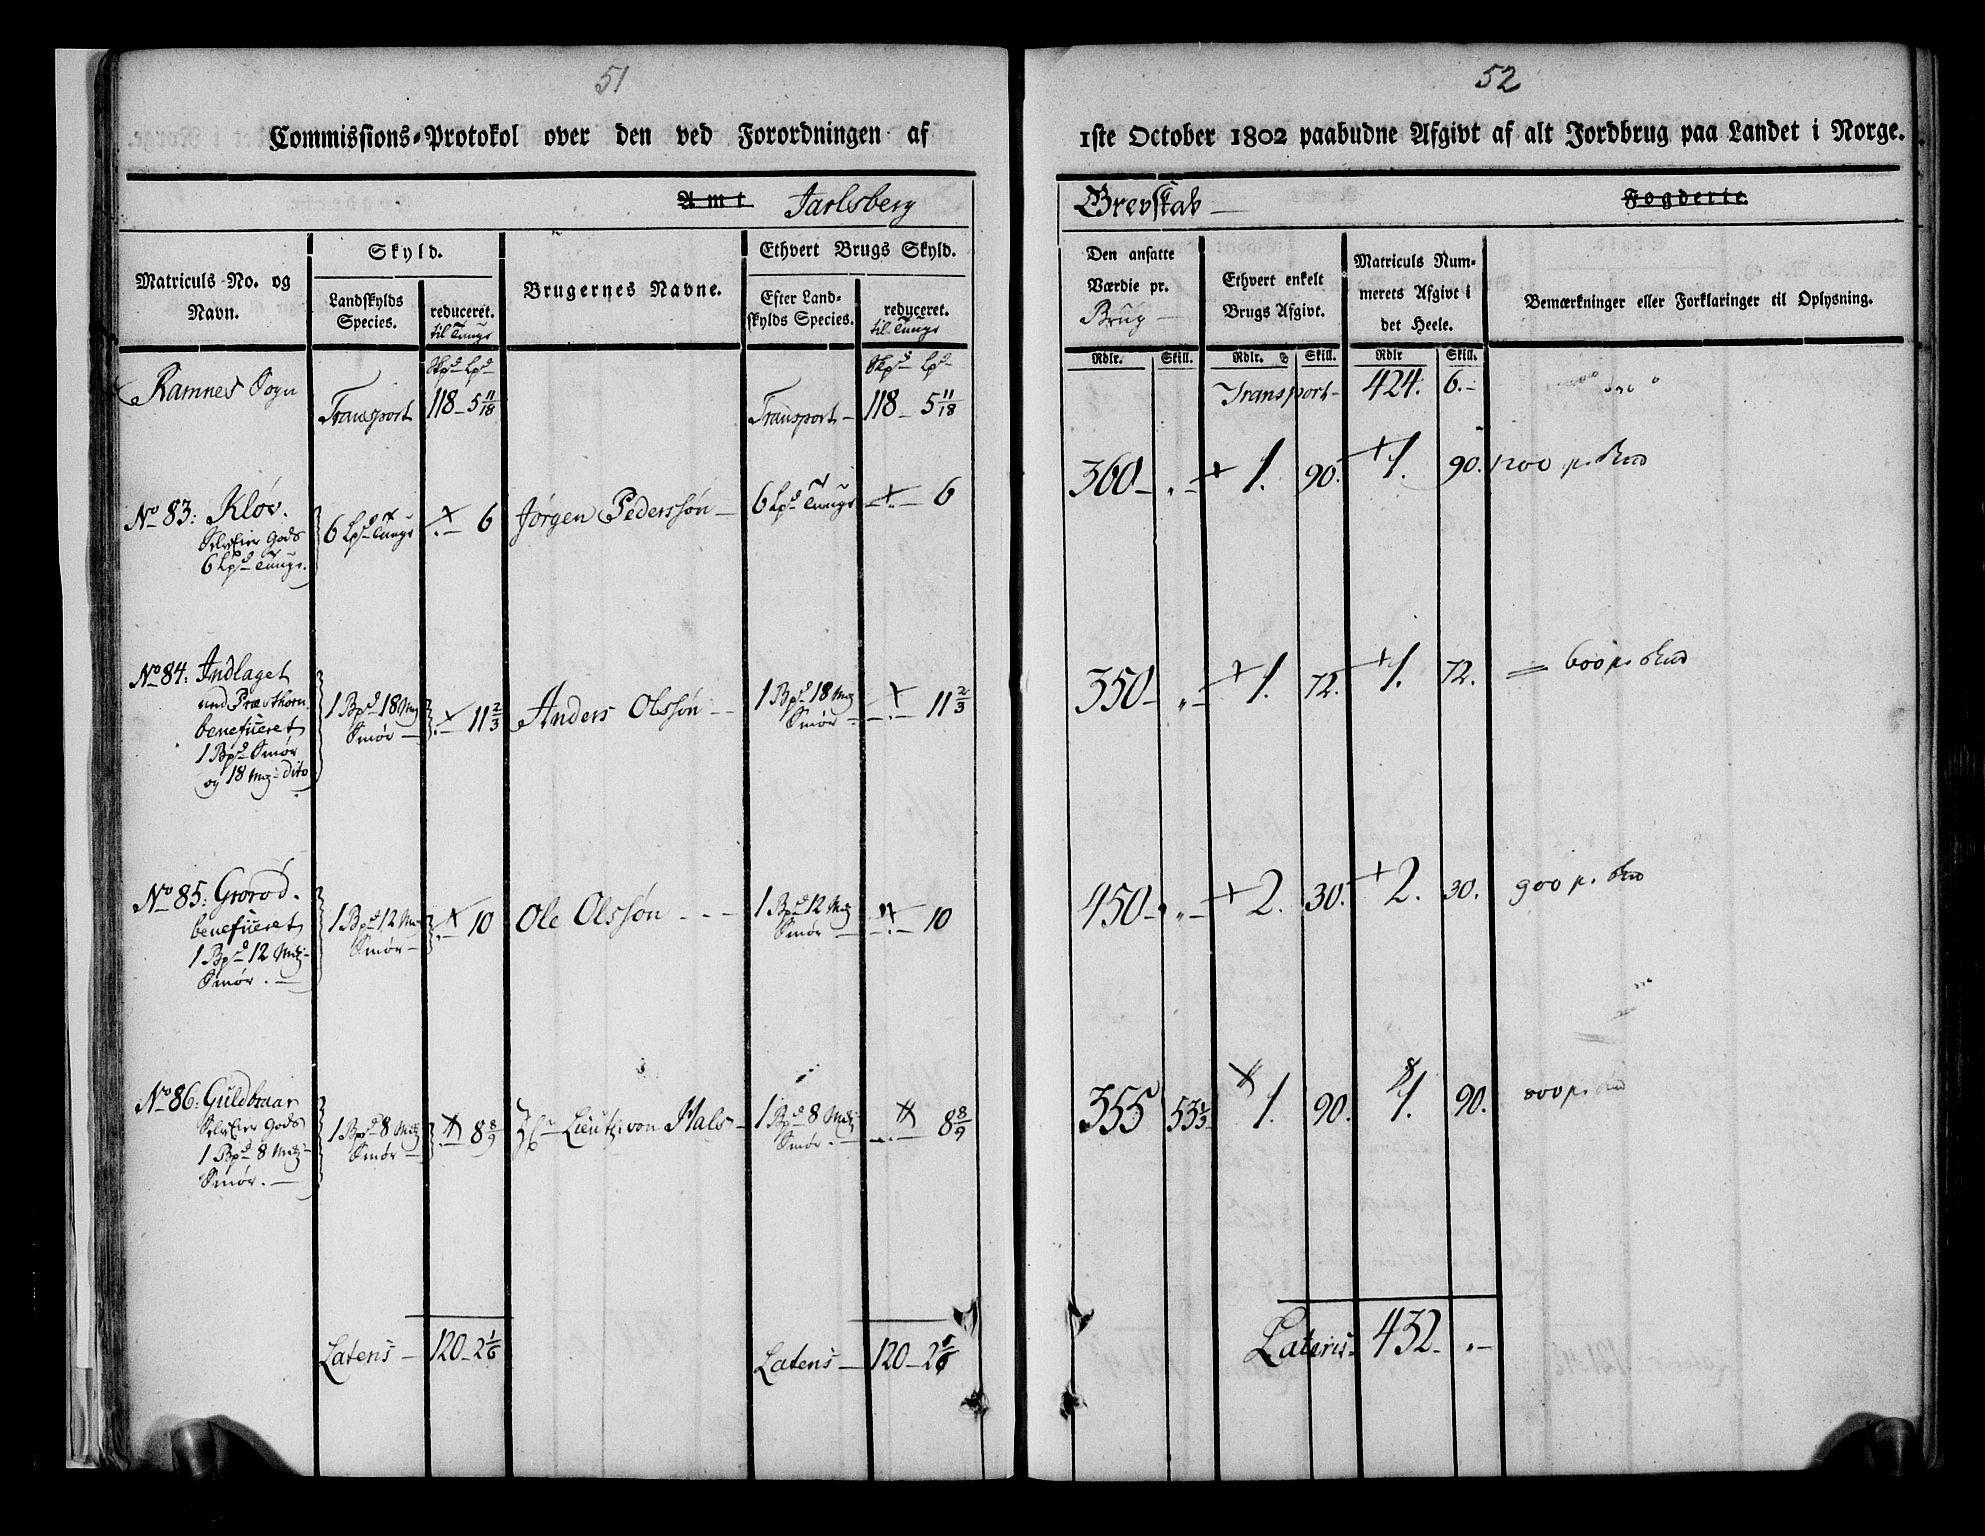 51
Commissions-Protokol over den ved Forordningen af
Amt Jarlsberg
Matriculs-No. og Navn.
Skyld.
Landskylds Species.
reduceret.
til Tunge
Brugernes Navne.
Ethvert Brugs Skyld.
Efter Landskylds Species.
reduceret.
til Tunge
Ramnes Sogn
Transport
Skpd Lpd
118 - 5 11/18
Transport -
Skpd Lpd
118 - 5 11/18
No 83: Kløv.
SelvEier Gods
6 Lpd Tunge.
6 Lpd Tunge
6
Jørgen Pederssøn -
6 Lpd Tunge
6
No 84: Indlaget
und Præsthorn.
beneficeret
1 Bpd Smør
og 18 Mrg dito
1 Bpd 18 Mrg
Smør -
11 2/3
Anders Olssøn - -
1 Bpd 18 Mrg
Smør -
11 2/3
No 85: Grorød.
beneficeret
1 Bpd 12 Mrg
Smør. -
1 Bpd 12 Mrg
Smør -
10
Ole Olssøn - - -
1 Bpd 12 Mrg
Smør -
10
No 86: Guldkraar
SelvEier Gods
1 Bpd 8 Mrg
Smør. -
1 Bpd 8 Mrg
Smør -
8 8/9
Hr Lieut: von Hals -
1 Bpd 8 Mrg
Smør. -
8 8/9
Lateris -
120 - 2 1/6
Lateris -
120 - 2 1/6
52
1ste October 1802 paabudne Afgivt af alt Jordbrug paa Landet i Norge.
Grevskab -
Fogderie
Den ansatte Værdie pr.
Brug -
Ethvert enkelt Brugs Afgivt.
Matriculs Nummerets Afgivt i det Heele.
Bemærkninger eller Forklaringer til Oplysning.
Rdlr. Skill. Rdlr. Skill. Rdlr Skill.
Transport - 424. 6. -
360 - „ - + 1. 90. + 1. 90. 1200
350 - „ - + 1. 72. + 1. 72. = 600
450 - „ - + 2. 30. + 2. 30. 900
355 53 1/3 1. 90. 1. 90. 800
Lateris - 432. „ -